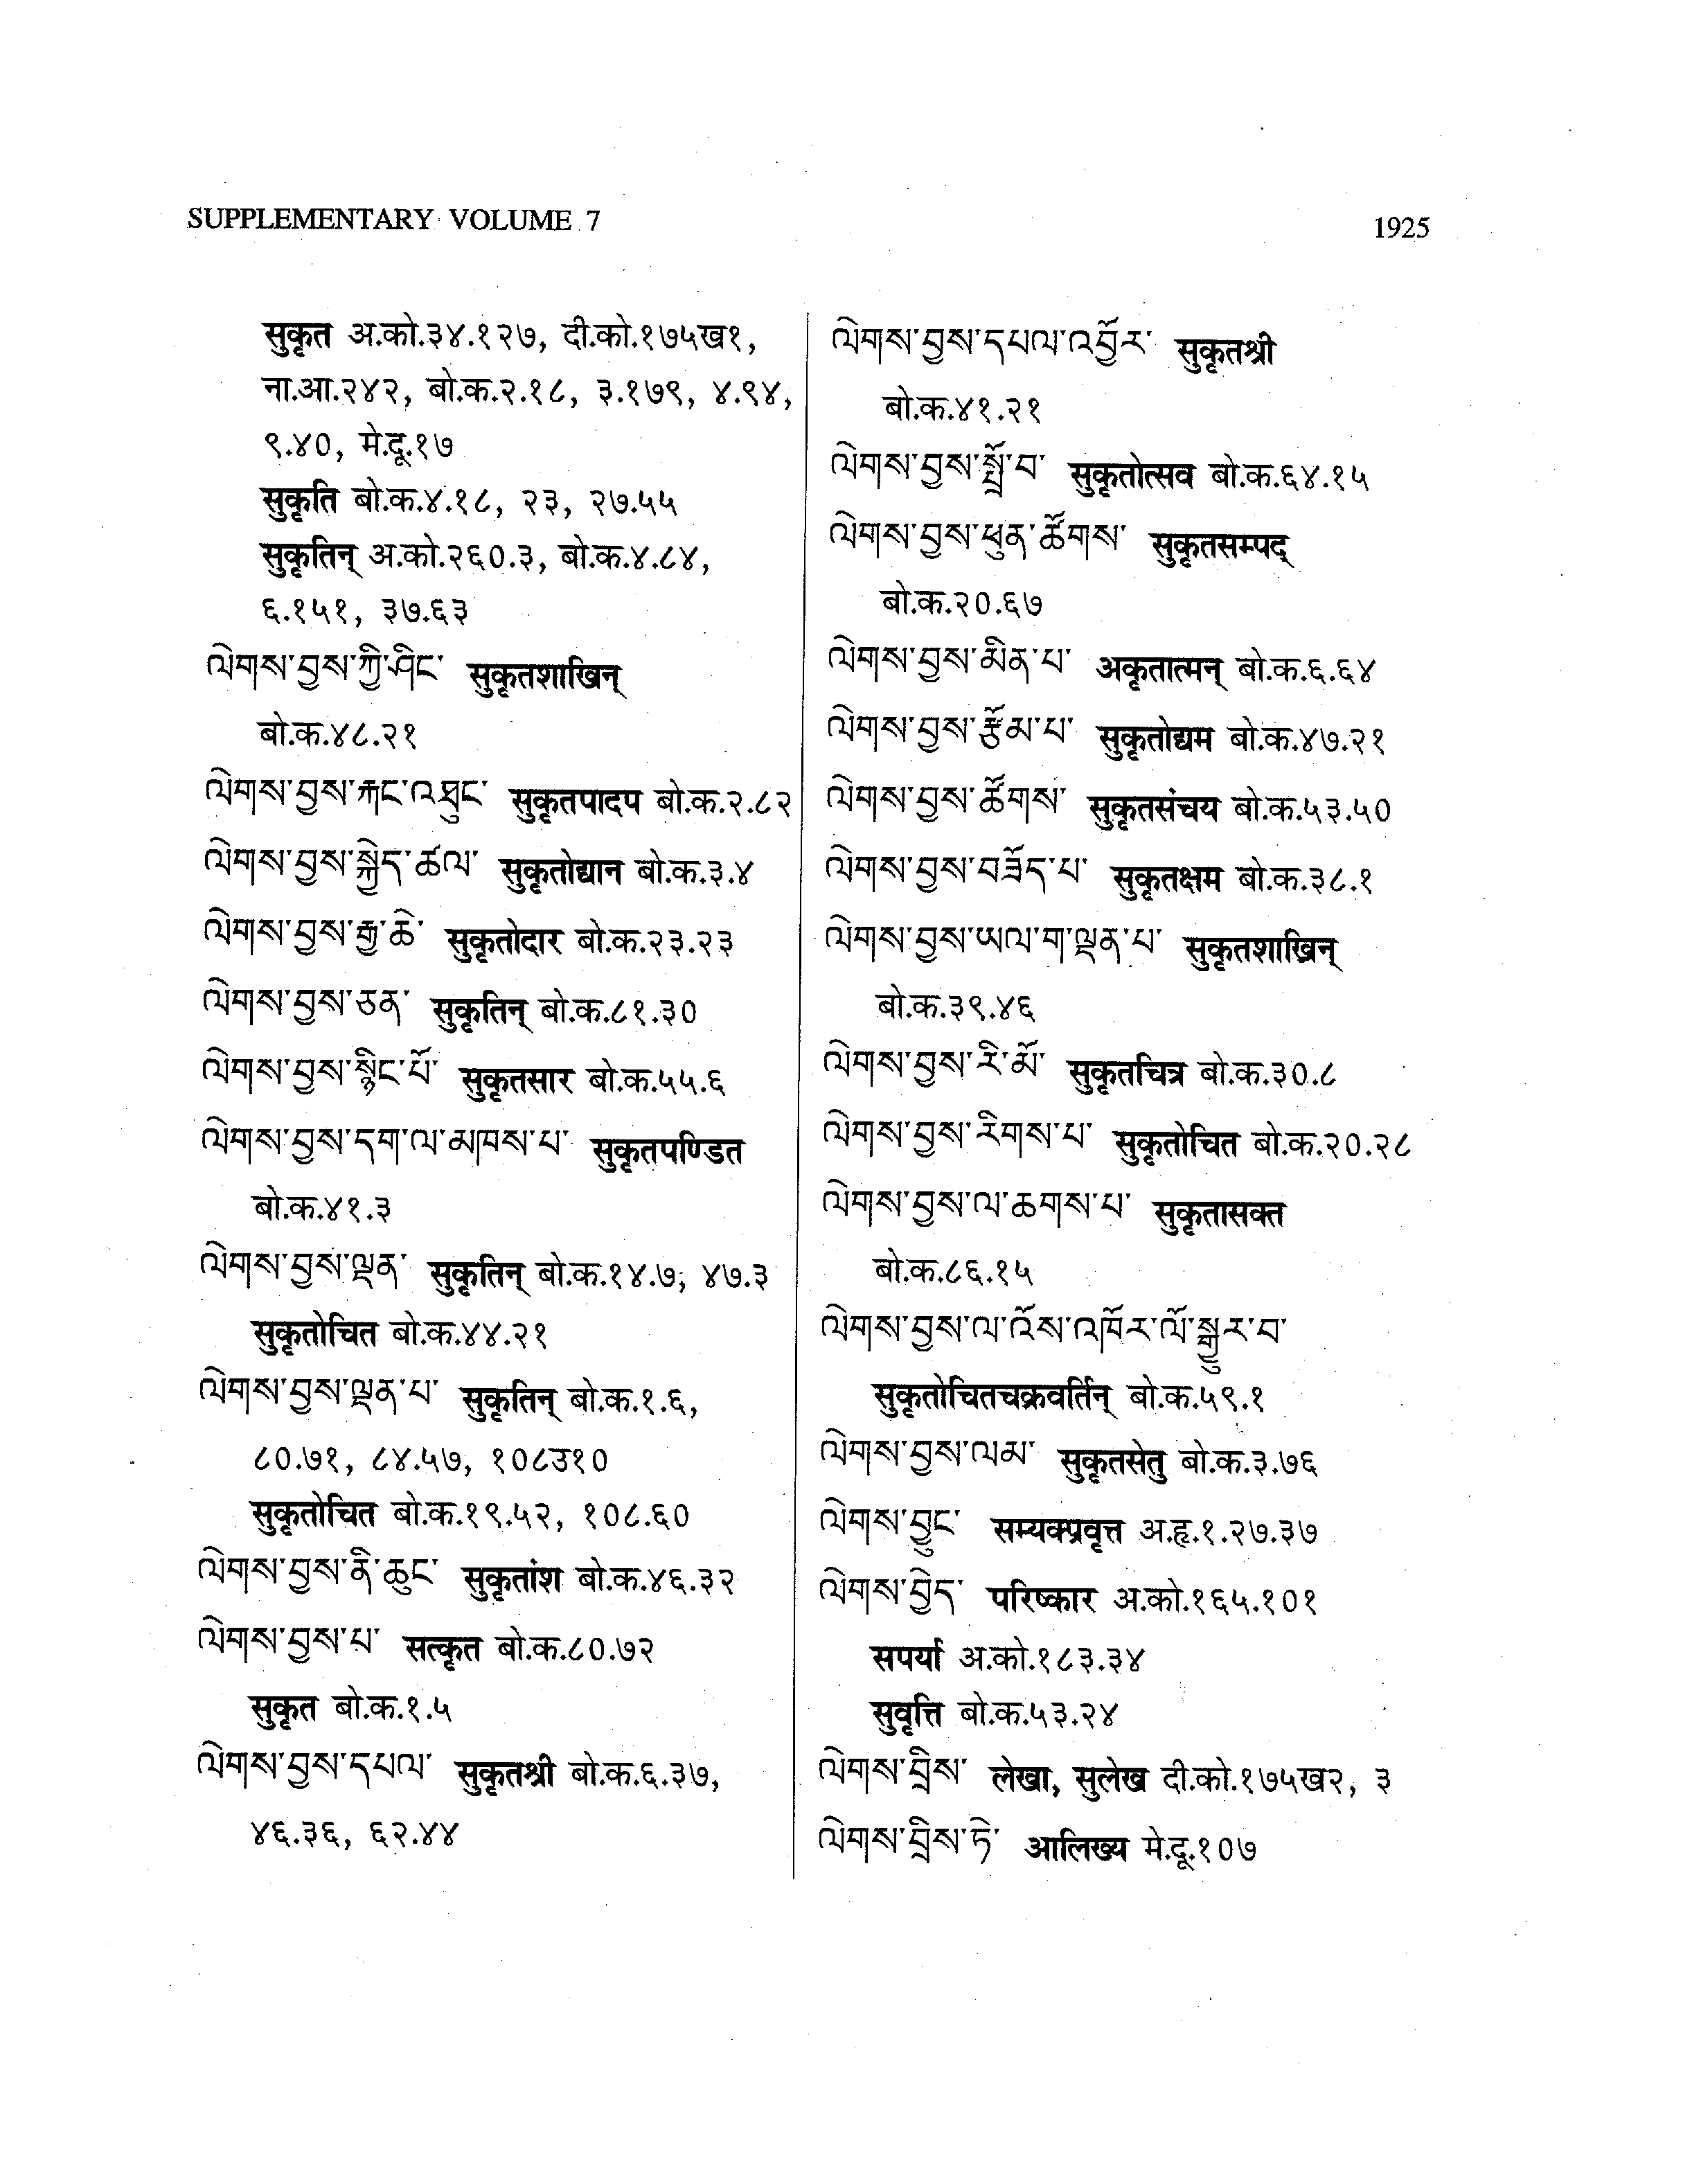 SUPPLEMENTARY VOLUME 7
1925
सुकृत अ.को.३४.१२७, दी.को.१७५ख१,
ना.आ.२४२, बो.क.२.१८, ३.१७९, ४.९४,
९.४०, मे.दू.१७
सुकृति बो.क.४.१८, २३, २७.५५
सुकृतिन् अ.को.२६०.३, बो.क.४.८४,
६.१५१, ३७.६३
ལེགས་བྱས་ཀྱི་ཤིང་ सुकृतशाखिन्
बो.क.४८.२१
ལེགས་བྱས་རྐང་འཐུང་ सुकृतपादप बो.क.२.८२
ལེགས་བྱས་སྐྱེད་ཚལ་ सुकृतोद्यान बो.क.३.४
ལེགས་བྱས་རྒྱ་ཆེ་ सुकृतोदार बो.क.२३.२३
ལེགས་བྱས་ཅན་ सुकृतिन् बो.क.८१.३०
ལེགས་བྱས་སྙིང་པོ་ सुकृतसार बो.क.५५.६
ལེགས་བྱས་དག་ལ་མཁས་པ་ सुकृतपण्डित
बो.क.४१.३
ལེགས་བྱས་ལྡན་ सुकृतिन् बो.क.१४.७, ४७.३
सुकृतोचित बो.क.४४.२१
ལེགས་བྱས་ལྡན་པ་ सुकृतिन् बो.क.१.६,
८०.७१, ८४.५७, १०८उ१०
सुकृतोचित बो.क.१९.५२, १०८.६०
ལེགས་བྱས་ནི་ཆུང་ सुकृतांश बो.क.४६.३२
ལེགས་བྱས་པ་ सत्कृत बो.क.८०.७२
सुकृत बो.क.१.५
ལེགས་བྱས་དཔལ་ सुकृतश्री बो.क.६.३७,
४६.३६, ६२.४४
ལེགས་བྱས་དཔལ་འབྱོར་ सुकृतश्री
बो.क.४१.२१
ལེགས་བྱས་སྤྲོ་བ་ सुकृतोत्सव बो.क.६४.१५
ལེགས་བྱས་ཕུན་ཚོགས་ सुकृतसम्पद्
बो.क.२०.६७
ལེགས་བྱས་མིན་པ་ अकृतात्मन् बो.क.६.६४
ལེགས་བྱས་རྩོམ་པ་ सुकृतोद्यम बो.क.४७.२१
ལེགས་བྱས་ཚོགས་ सुकृतसंचय बो.क.५३.५०
ལེགས་བྱས་བཟོད་པ་ सुकृतक्षम बो.क.३८.१
ལེགས་བྱས་ཡལ་ག་ལྡན་པ་ सुकृतशाखिन्
बो.क.३९.४६
ལེགས་བྱས་རི་མོ་ सुकृतचित्र बो.क.३०.८
ལེགས་བྱས་རིགས་པ་ सुकृतोचित बो.क.२०.२८
ལེགས་བྱས་ལ་ཆགས་པ་ सुकृतासक्त
बो.क.८६.१५
ལེགས་བྱས་ལ་འོས་འཁོར་ལོ་སྒྱུར་བ་
सुकृतोचितचक्रवर्तिन् बो.क.५९.१
ལེགས་བྱས་ལམ་ सुकृतसेतु बो.क.३.७६
ལེགས་བྱུང་ सम्यक्प्रवृत्त अ.हृ.१.२७.३७
ལེགས་བྱེད་ परिष्कार अ.को.१६५.१०१
सपर्या अ.को.१८३.३४
सुवृत्ति बो.क.५३.२४
ལེགས་བྲིས་ लेखा, सुलेख दी.को.१७५ख२, ३
ལེགས་བྲིས་ཏེ་ आलिख्य मे.दू.१०७